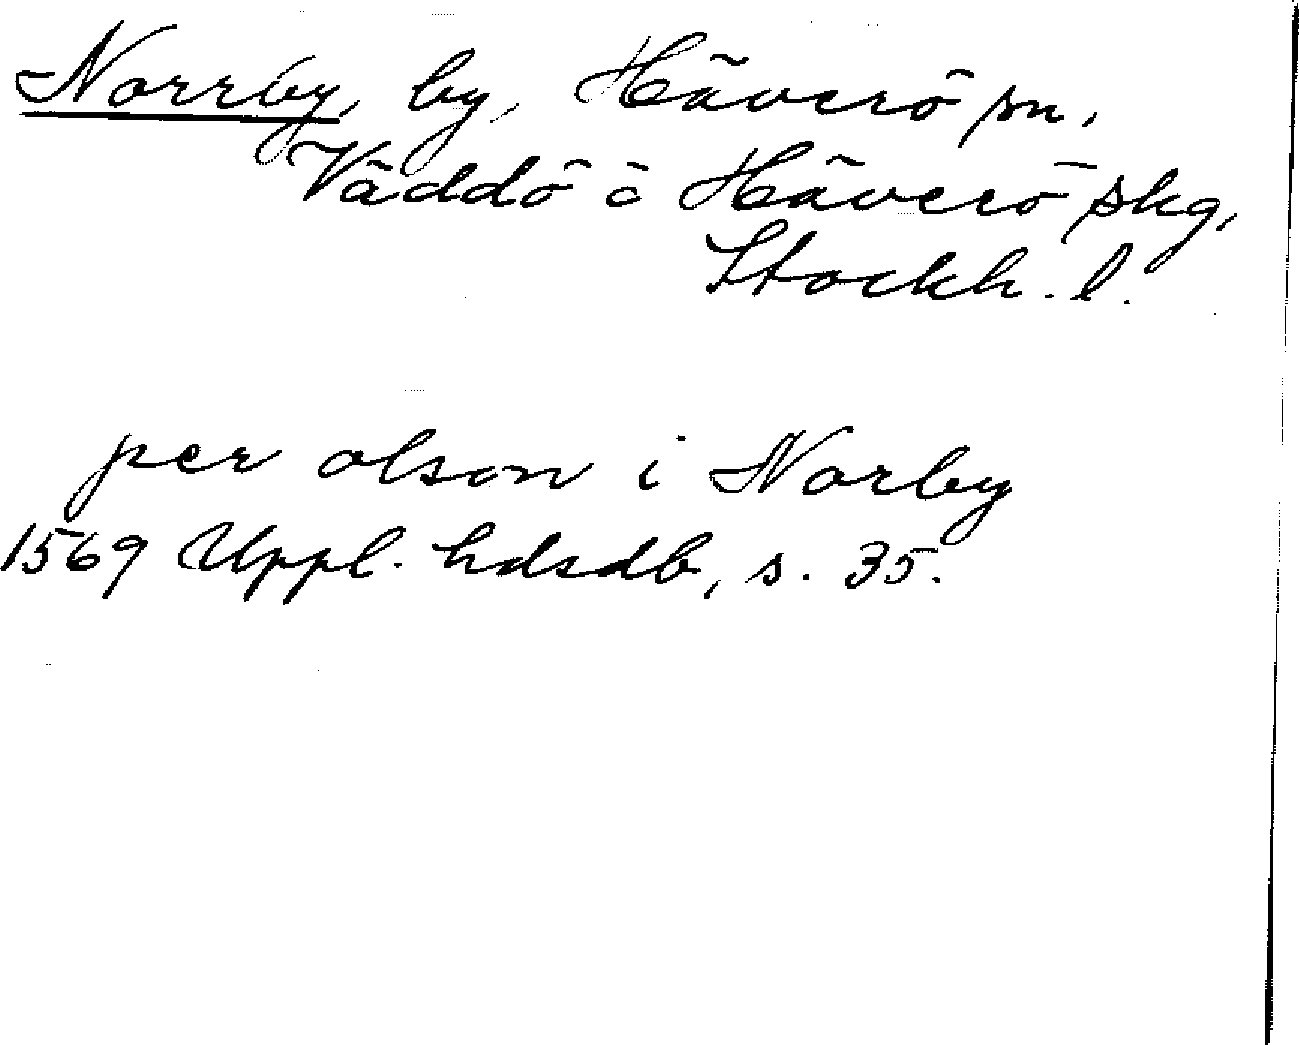 Norrby, by, Häverö sn,
Väddö o Häverö skg,
Stockh. l.
per olson i Norby
1569 Uppl. hdsdb, s. 35.